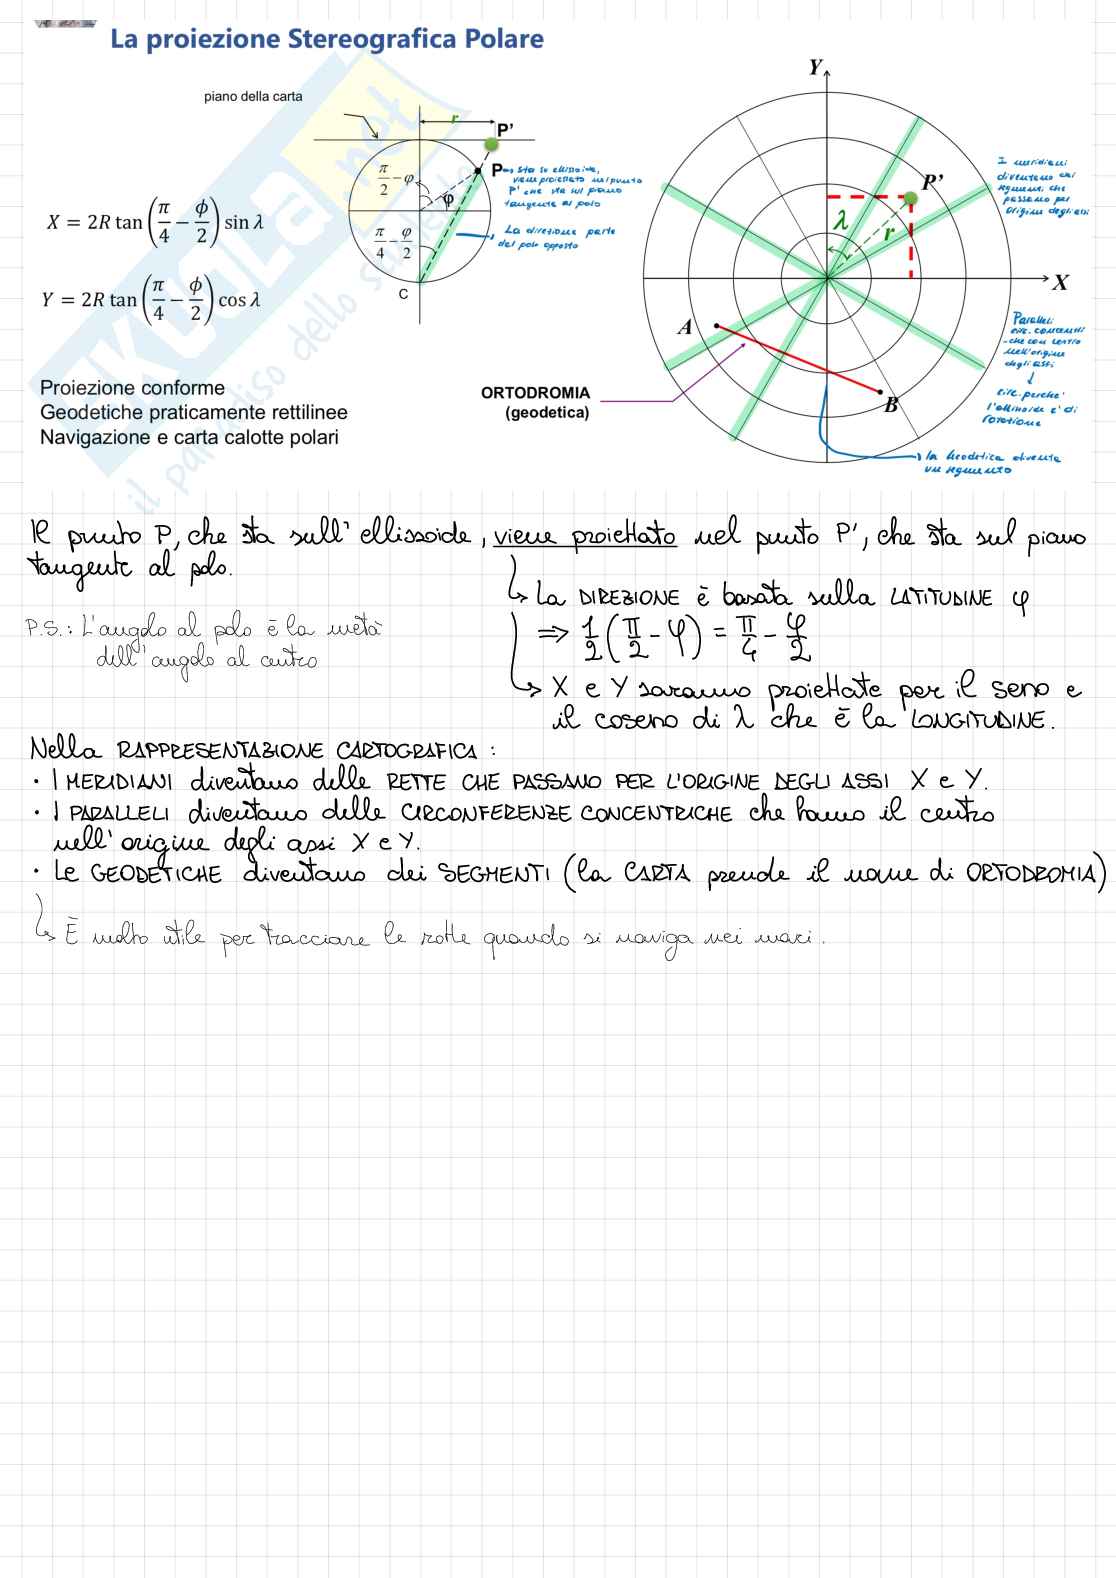 La proiezione Stereografica Polare
piano della carta
r
P'
P
π/2 − φ
φ
π/4 − φ/2
C
sta su ellissoide,
viene proiettato nel punto
P' che sta sul piano
tangente al polo
La direzione parte
dal polo opposto
X = 2R tan(π/4 − ϕ/2) sin λ
Y = 2R tan(π/4 − ϕ/2) cos λ
Proiezione conforme
Geodetiche praticamente rettilinee
Navigazione e carta calotte polari
Y
P'
λ
r
X
A
B
ORTODROMIA
(geodetica)
I meridiani
diventano dei
segmenti che
passano per
Origine degli assi
Paralleli
circ. concentri
-che con centro
nell'origine
degli assi
↓
circ. perche'
l'ellissoide e' di
rotazione
la Geodetica diventa
un segmento
SKUOLA.net
il paradiso dello
Il punto P, che sta sull'ellissoide, viene proiettato nel punto P', che sta sul piano
tangente al polo.
↳ La DIREZIONE è basata sulla LATITUDINE φ
⇒ 1/2 (π/2 − φ) = π/4 − φ/2
P.S.: L'angolo al polo è la metà
dell'angolo al centro
↳ X e Y saranno proiettate per il seno e
il coseno di λ che è la LONGITUDINE.
Nella RAPPRESENTAZIONE CARTOGRAFICA :
· I MERIDIANI diventano delle RETTE CHE PASSANO PER L'ORIGINE DEGLI ASSI X e Y.
· I PARALLELI diventano delle CIRCONFERENZE CONCENTRICHE che hanno il centro
nell'origine degli assi X e Y.
· Le GEODETICHE diventano dei SEGMENTI (la CARTA prende il nome di ORTODROMIA)
↳ È molto utile per tracciare le rotte quando si naviga nei mari.